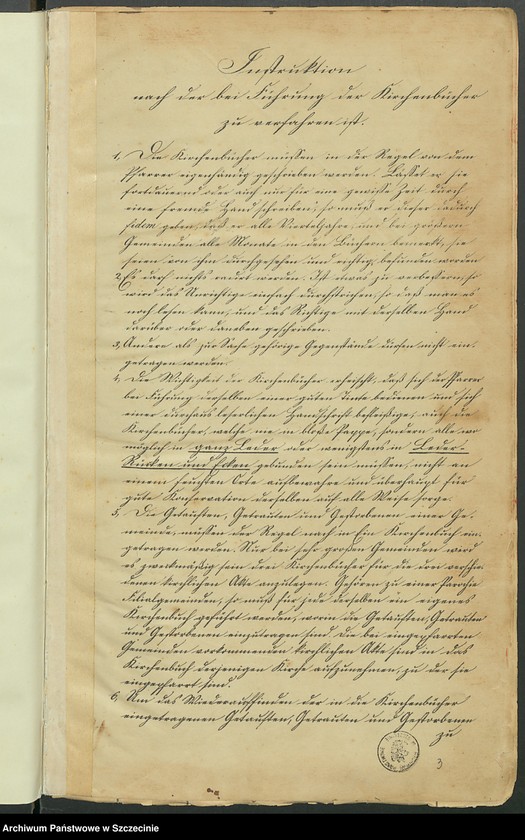 Instruktion
nach der bei Führung der Kirchenbücher
zu verfahren ist.
1, Die Kirchenbücher müssen in der Regel von dem
Pfarrer eigenhändig geschrieben werden. Lässet er sie
fortdauernd oder auch nur für eine gewisse Zeit durch
eine fremde Hand schreiben, so muß er dieser dadurch
fidem geben, daß er alle Vierteljahre, und bei größern
Gemeinden alle Monate in den Büchern bemerkt, sie
seien von ihm durchgesehen und richtig befunden worden
2, Es darf nichts radirt werden. Ist etwas zu verbessern, so
wird das Unrichtige einfach durchstrichen, so daß man es
noch lesen kann, und das Richtige mit derselben Hand
darüber oder daneben geschrieben.
3, Andere als zur Sache gehörige Gegenstände dürfen nicht ein-
getragen werden.
4, Die Wichtigkeit der Kirchenbücher erheischt, daß sich der Pfarrer
bei Führung derselben einer guten Tinte bedienen und sich
einer durchaus leserlichen Handschrift befleißige, auch die
Kirchenbücher, welche nie in bloße Pappe, sondern alle wo
möglich in ganz Leder oder wenigstens in Leder-
Rücken und Ecken gebunden sein müssen, nicht an
einem feuchten Orte aufbewahre und überhaupt für
gute Konservation derselben auf alle Weise sorge.
5, Die Getauften, Getrauten und Gestorbenen einer Ge-
meinde, müssen der Regel nach in Ein Kirchenbuch ein-
getragen werden. Nur bei sehr großen Gemeinden wird
es zweckmäßig sein drei Kirchenbücher für die drei verschie-
denen kirchlichen Akte anzulegen. Gehören zu einer Parochie
Filialgemeinden, so muß für jede derselben ein eigenes
Kirchenbuch geführt werden, worin die Getauften, Getrauten
und Gestorbenen einzutragen sind. Die bei eingepfarrten
Gemeinden vorkommenden kirchlichen Akte sind in das
Kirchenbuch derjenigen Kirche aufzunehmen, zu der sie
eingepfarrt sind.
6, Um das Wiederauffinden der in die Kirchenbücher
eingetragenen Getauften, Getrauten und Gestorbenen
zu
3
Archiwum Państwowe w Szczecinie